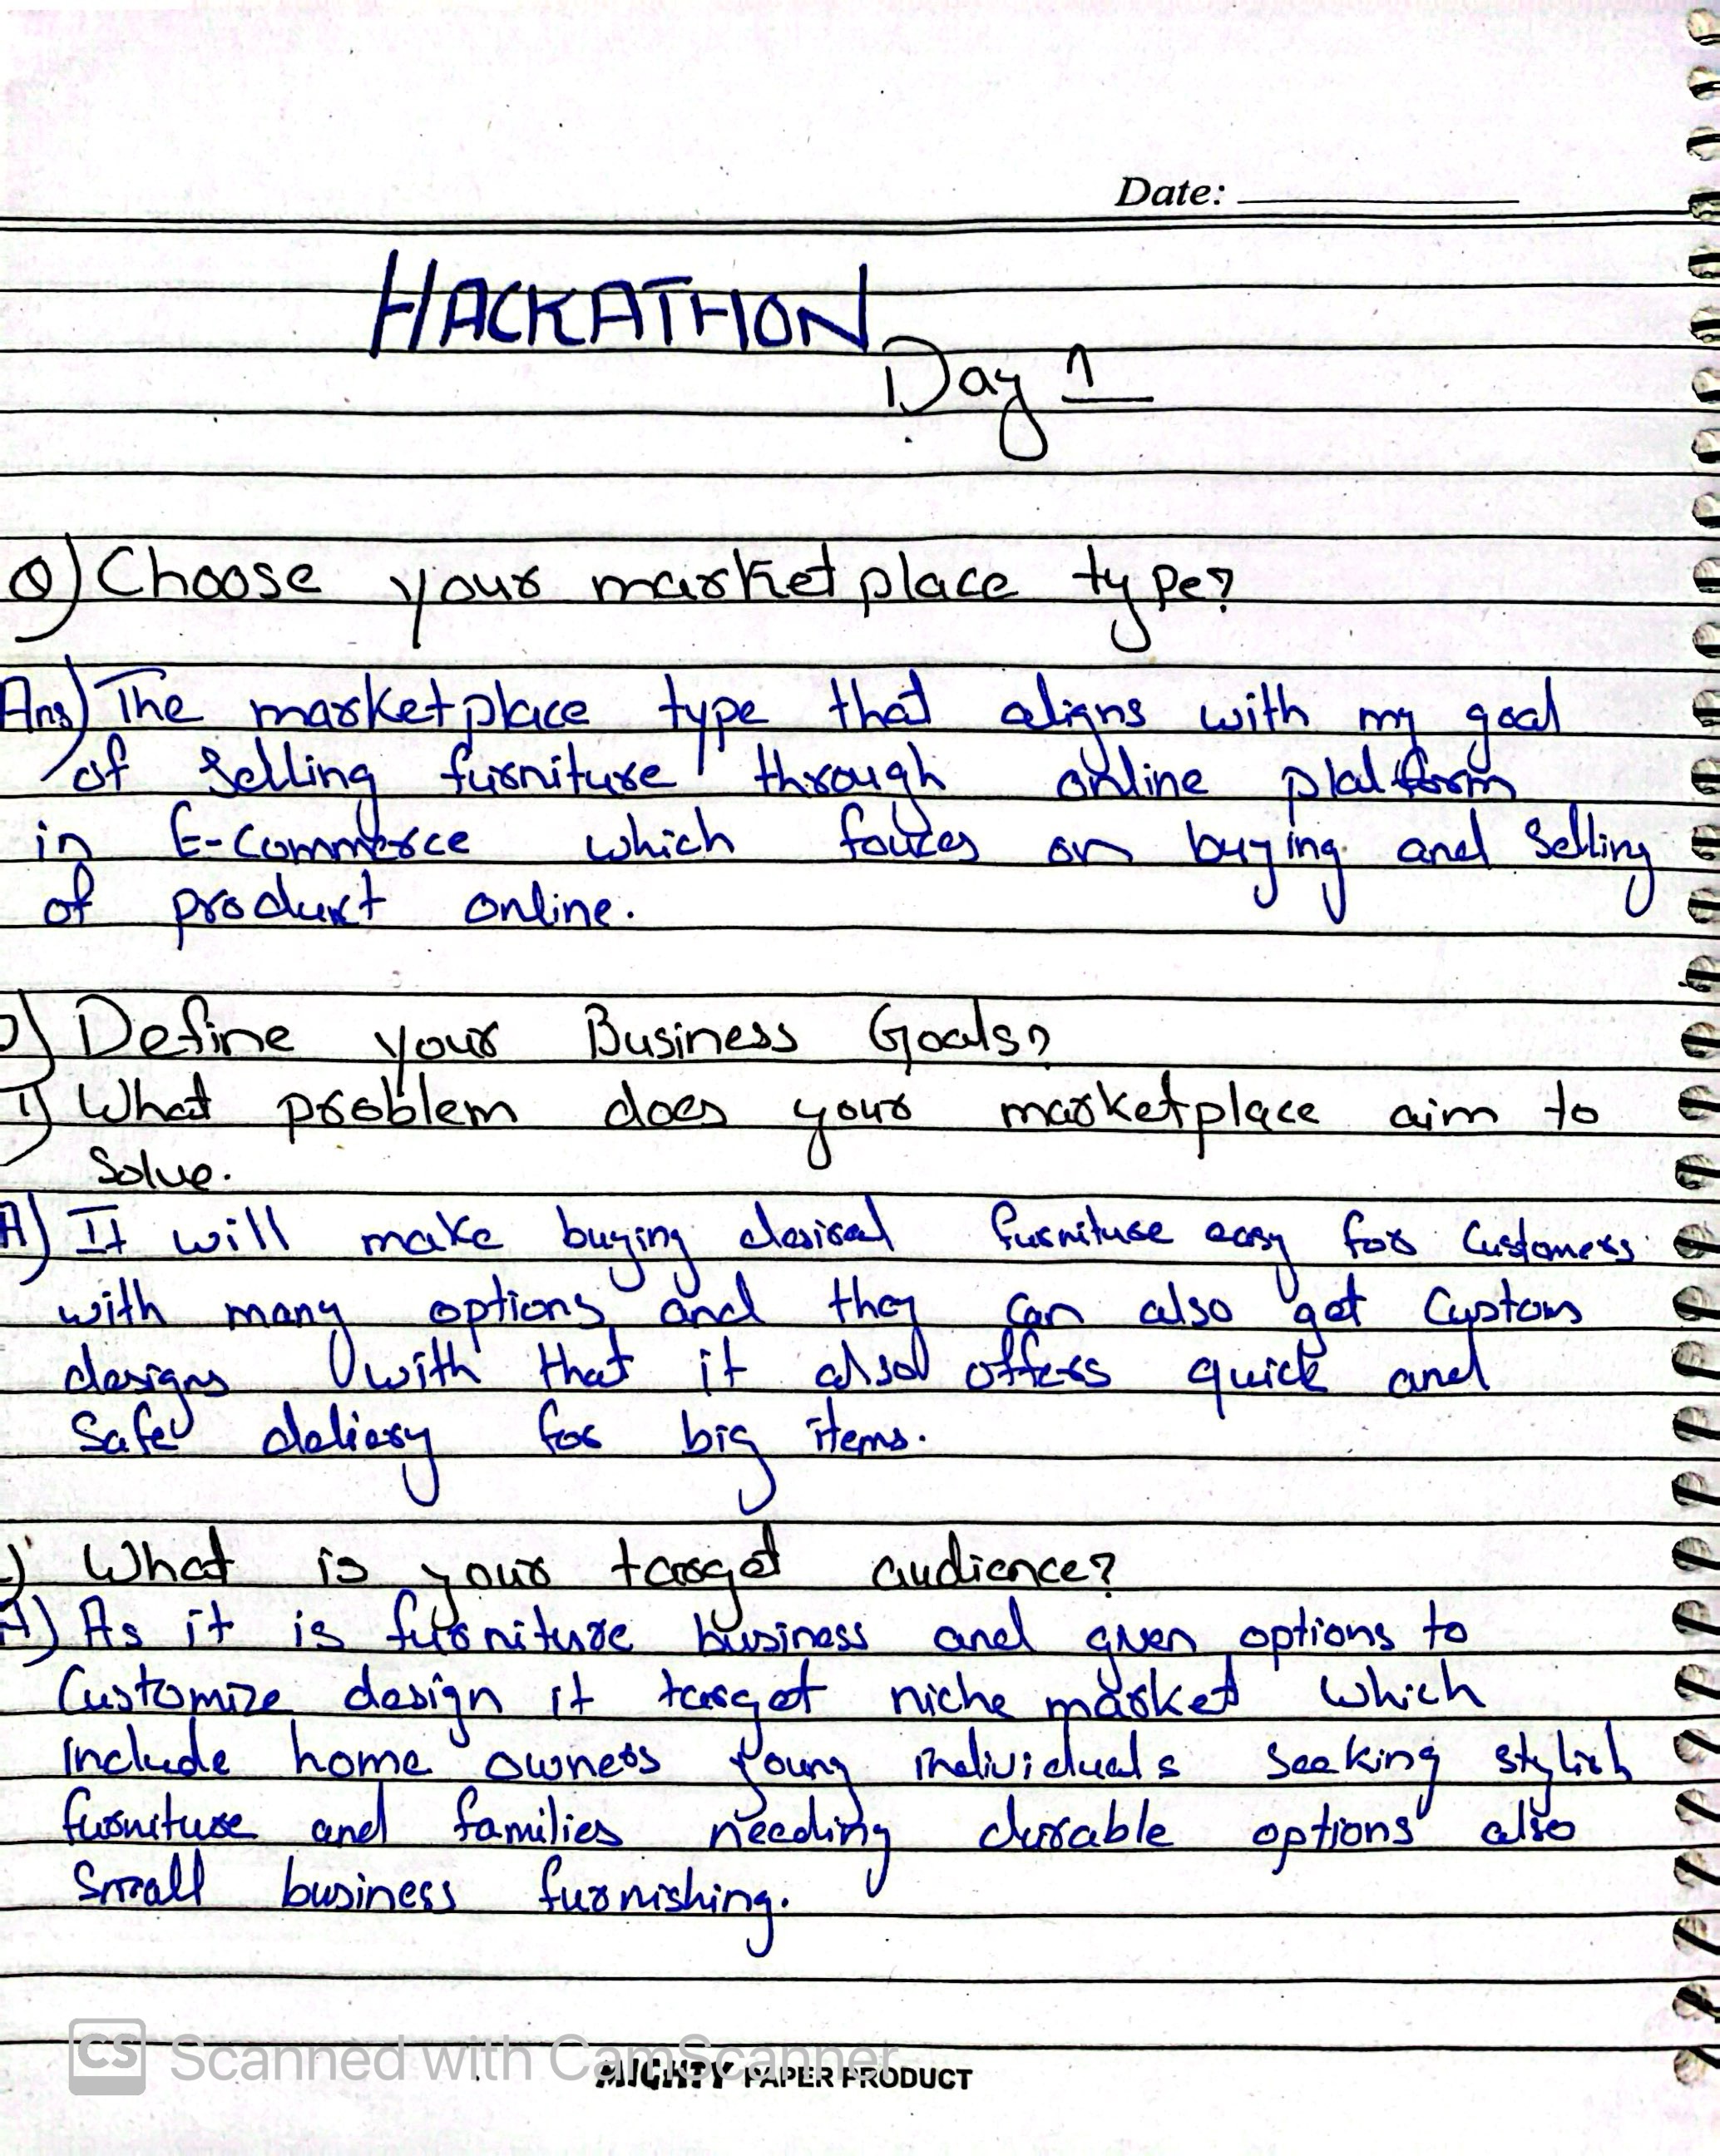 Date:
HACKATHON
Day 1
Q) Choose your marketplace type?
Ans) The marketplace type that aligns with my goal
of selling furniture through online platform
in E-Commerce which fouces on buying and selling
of product online.
Define your Business Goals?
1) What problem does your marketplace aim to
solve.
A) It will make buying desired furniture easy for customers
with many options and they can also get custom
designs with that it also offers quick and
safe delivery for big items.
What is your target audience?
A) As it is furniture business and given options to
Customize design it target niche market which
include home owners young individuals seeking stylish
furniture and families needing durable options also
small business furnishing.
CS Scanned with CamScanner
MIGHTY PAPER PRODUCT